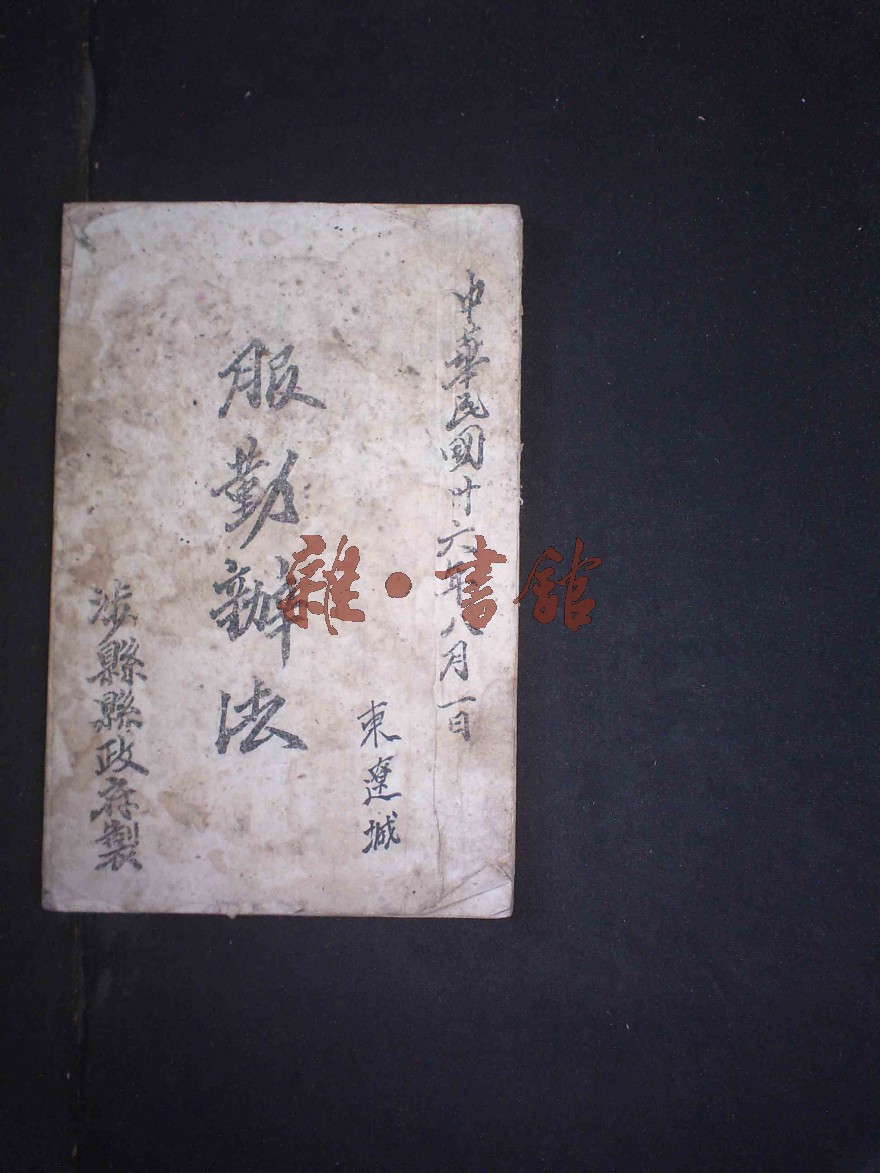 中華民國卅六年八月一日
東遼城
服勤辦法
涉縣縣政府製
雜·書館